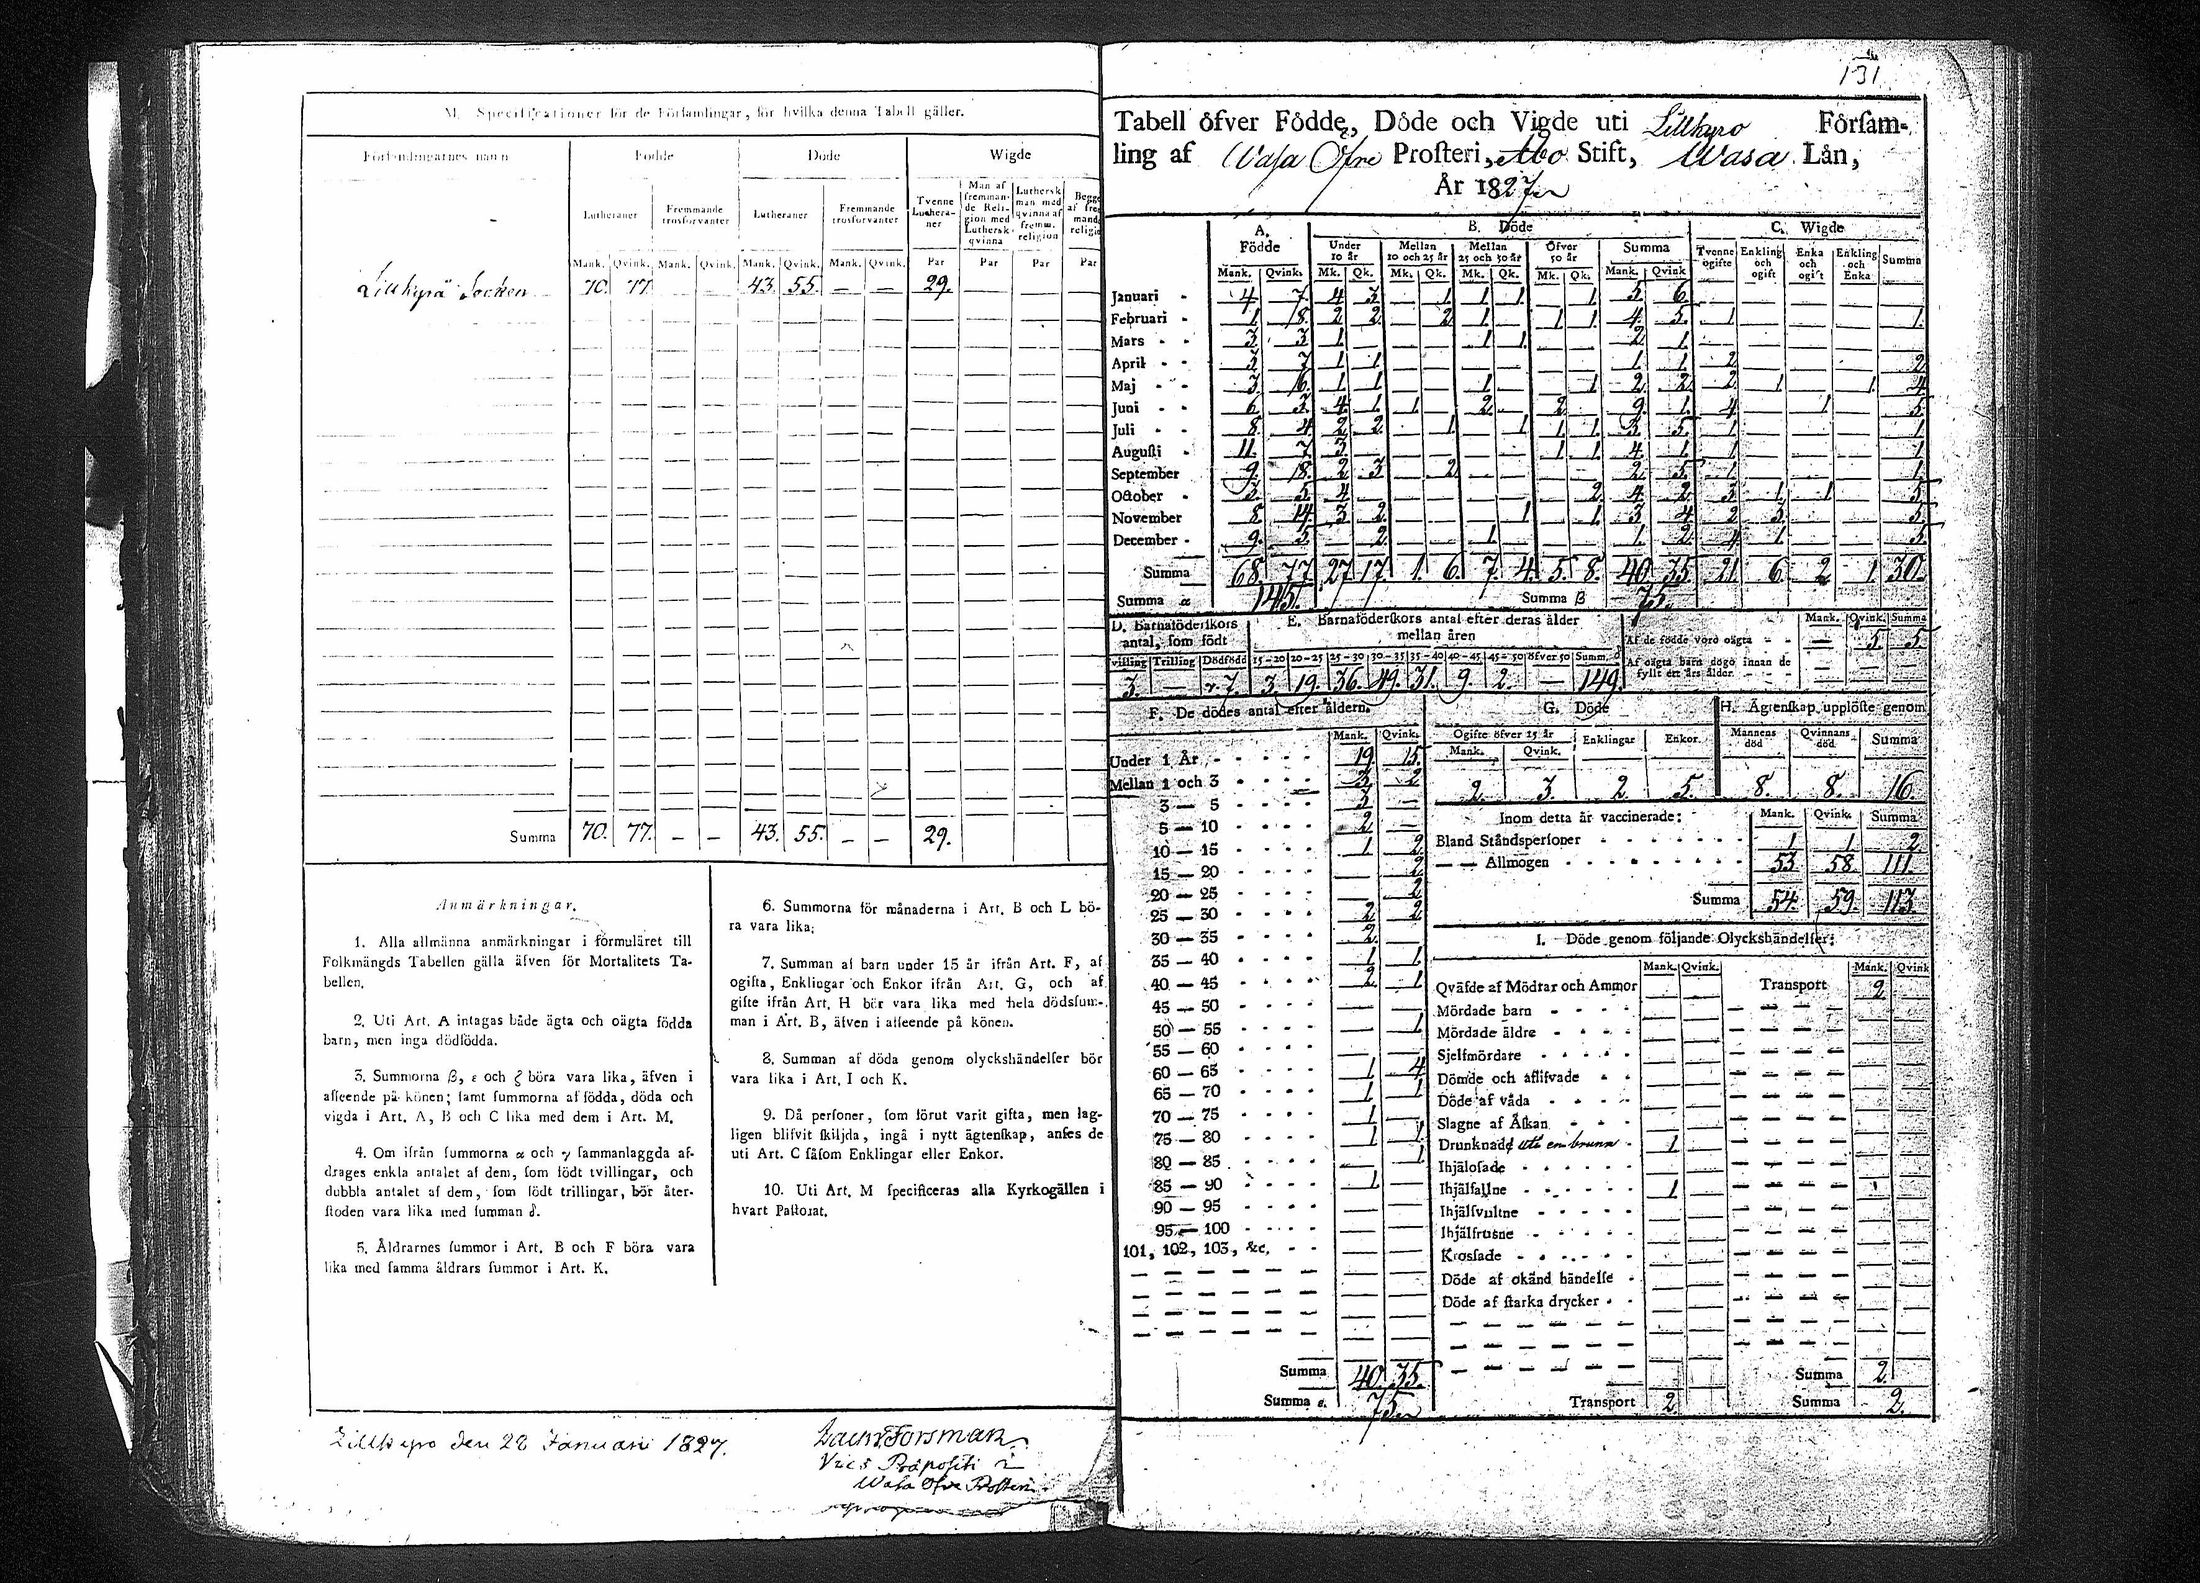 M. Specificationer för de Församlingar, för hvilka denna Tabell gäller.
Församlingarnes namn Födde Döde Wigde
Lutheraner Fremmande trosförvanter Lutheraner Fremmande trosförvanter Tvenne Lutheraner Man af fremmande Religion med Luthersk qvinna Luthersk man med qvinna af fremm. religion
Mank. Qvink. Mank. Qvink. Mank. Qvink. Mank. Qvink. Par Par Par Par
Lillkyrä Socken 70. 77. — — 43. 55. — — 29.
Summa 70. 77. — — 43. 55. — — 29.
Anmärkningar.
1. Alla allmänna anmärkningar i formuläret till
Folkmängds Tabellen gälla äfven för Mortalitets Ta-
bellen.
2. Uti Art. A intagas både ägta och oägta födda
barn, men inga dödfödda.
3. Summorna β, ε och ζ böra vara lika, äfven i
afseende på könen; samt summorna af födda, döda och
vigda i Art. A, B och C lika med dem i Art. M.
4. Om ifrån summorna α och γ sammanlaggda af-
drages enkla antalet af dem, som födt tvillingar, och
dubbla antalet af dem, som födt trillingar, bör åter-
stoden vara lika med summan δ.
5. Åldrarnes summor i Art. B och F böra vara
lika med samma åldrars summor i Art. K.
6. Summorna för månaderna i Art. B och L bö-
ra vara lika.
7. Summan af barn under 15 år ifrån Art. F, af
ogifta, Enklingar och Enkor ifrån Art. G, och af
gifte ifrån Art. H bör vara lika med hela dödssum-
man i Art. B, äfven i afseende på könen.
8. Summan af döda genom olyckshändelser bör
vara lika i Art. I och K.
9. Då personer, som förut varit gifta, men lag-
ligen blifvit skiljda, ingå i nytt ägtenskap, anses de
uti Art. C såsom Enklingar eller Enkor.
10. Uti Art. M specificeras alla Kyrkogällen i
hvart Pastorat.
Lillkyro den 28 Januari 1827.
Forsman
Vice Präpositi i
Wasa Öfre Prosteri
131
Tabell öfver Födde, Döde och Vigde uti Lillkyro Församling
ling af Wasa Öfre Prosteri, Åbo Stift, Wasa Län,
År 1827
A. Födde B. Döde C. Wigde
Under 10 år Mellan 10 och 25 år Mellan 25 och 50 år Öfver 50 år Summa Tvenne ogifte Enkling och ogift Enka och ogift Enkling och Enka Summa
Mank. Qvink. Mk. Qk. Mk. Qk. Mk. Qk. Mk. Qk. Mank. Qvink.
Januari 4. 7. 4. 3. — 1. 1. 1. — 1. 5. 6. — — — — —
Februari 1. 8. 2. 2. — 2. 1. — 1. 1. 4. 5. 1. — — — 1.
Mars 3. 3. 1. — — — 1. 1. — — 2. 1. — — — — —
April 3. 7. 1. 1. — — — — — — 1. 1. 2. — — — 2.
Maj 3. 6. 1. 1. — — 1. — — 1. 2. 2. 2. 1. — 1. 4.
Juni 6. 3. 4. 1. 1. — 2. — 2. — 9. 1. 4. — 1. — 5.
Juli 8. 4. 2. 2. — 1. — 1. 1. 1. 3. 5. 1. — — — 1.
Augusti 11. 7. 3. — — — — — 1. 1. 4. 1. 1. — — — 1.
September 9. 8. 2. 3. — 2. — — — — 2. 5. 1. — — — 1.
October 3. 5. 4. — — — — — — 2. 4. 2. 3. 1. 1. — 5.
November 8. 14. 3. 2. — — — 1. — 1. 3. 4. 2. 3. — — 5.
December 9. 5. — 2. — — 1. — — — 1. 2. 4. 1. — — 5.
Summa 68. 77. 27. 17. 1. 6. 7. 4. 5. 8. 40. 35. 21. 6. 2. 1. 30.
Summa α 145. Summa β 75.
D. Barnaföderskors antal, som födt
E. Barnaföderskors antal efter deras ålder mellan åren
Mank. Qvink. Summa
Af de födde voro oägta — 5. 5.
Af oägta barn dogo innan de fyllt ett års ålder — — —
Trilling Dödfödd 15-20 20-25 25-30 30-35 35-40 40-45 45-50 öfver 50 Summ. δ
3. — γ 7. 3. 19. 36. 49. 31. 9. 2. — 149.
F. De dödes antal efter åldern.
Mank. Qvink.
Under 1 År 19. 15.
Mellan 1 och 3 3. 2
3 — 5 3. —
5 — 10 2. —
10 — 15 1. 2.
15 — 20 — 2.
20 — 25 — 2.
25 — 30 2. 2.
30 — 35 2. —
35 — 40 1. 1.
40 — 45 2. 1.
45 — 50 — —
50 — 55 — 1.
55 — 60 — —
60 — 65 1. 4.
65 — 70 1. 1.
70 — 75 1. —
75 — 80 1. 1.
80 — 85 — 1.
85 — 90 1. —
90 — 95 — —
95 — 100 — —
101, 102, 103, &c. — —
Summa 40. 35.
Summa ε. 75.
G. Döde H. Ägtenskap upplöste genom
Ogifte öfver 15 år Enklingar Enkor. Mannens död Qvinnans död Summa
Mank. Qvink.
2. 3. 2. 5. 8. 8. 16.
Inom detta år vaccinerade: Mank. Qvink. Summa
Bland Ståndspersoner 1. 1. 2.
— — Allmogen 53. 58. 111.
Summa 54. 59. 113.
I. Döde genom följande Olyckshändelser:
Mank. Qvink. Mank. Qvink
Qväfde af Mödrar och Ammor Transport 2.
Mördade barn
Mördade äldre
Sjelfmördare
Dömde och aflifvade
Döde af våda
Slagne af Åskan
Drunknade uti en brunn 1.
Ihjälosade
Ihjälfallne 1.
Ihjälsvultne
Ihjälfrusne
Krossade
Döde af okänd händelse
Döde af starka drycker
Summa 2.
Transport 2. Summa 2.